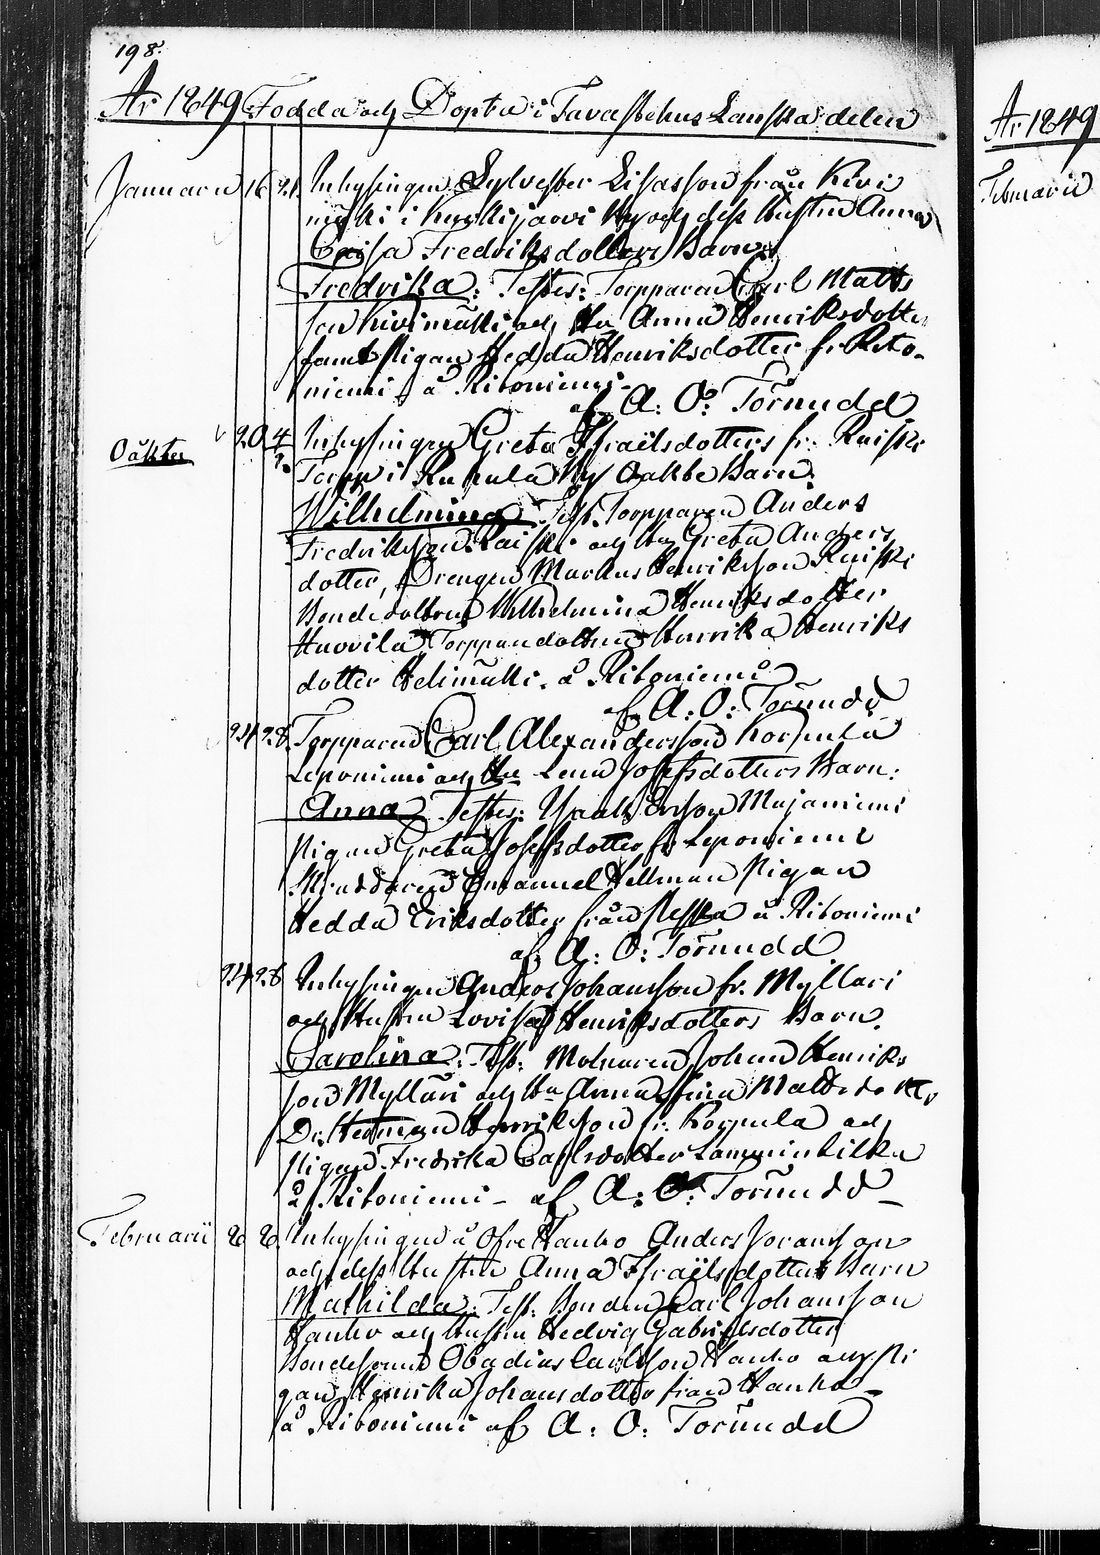 198.
År 1849 Födda och Döpta i Tavastehus Länska delen
År 1849
Januarii 16 21. Inhysingen Sylvester Eliasson från Kivi
Februarii
mäki i Kuskijaervi By och dess Hustru Anna
Caisa Fredriksdotters Barn
Fredrika: Testes: Torpparen Carl Matts
son Kivimäki och Hu Anna Henriksdotter
samt Pigan Hedda Henriksdotter fr. Rito-
niemi å Ritoniemi-
af A: O: Törnudd
Oäkta 20 4/2 Inhysingen Greta Israëlsdotters fr. Ruiski
Torp i By Oäkta Barn.
Wilhelmina Test. Torpparen Anders
Fredriksson Ruiski och Hu Greta Anders
dotter, Drengen Markus Henriksson Ruiski
Bondedottren Wilhelmina Henriksdotter
Huovila Torpparedottren Henrika Henriks
dotter Helimäki. å Ritoniemi
af A: O: Törnudd
24 28. Torpparen Carl Alexandersson
Leponiemi och Hu Lena Josefsdotters Barn:
Anna Testes: Ersson Majaniemi
Pigan Greta Josefsdotter fr Leponiemi
Emanuel Hellman Pigan
Hedda Eriksdotter från å Ritoniemi
af A: O: Törnudd
24 28 Inhysingen Anders Johansson fr. Myllari
och Hustru Lovisa Henriksdotters Barn.
Carolina: Test: Molnaren Johan Henriks
son Mylläri och Hu Anna Stina Mattsdotter
Dr. Herman Henriksson fr. Korpula och
Pigan Fredrika Carlsdotter Lamminkilka
å Ritoniemi - af A: O: Törnudd -
Februarii 2 2. Inhysingen å Öfre Hanho Anders Joransson
och dess Hustru Anna Israëlsdotters Barn
Mathilda: Test: Bonden Carl Johansson
Hanho och Hustru Hedvig Gabrielsdotter
Bondesonen Obadias Carlsson Hanho och Pi
gan Henrika Johansdotter från Hanho -
å Ritoniemi af A: O: Törnudd